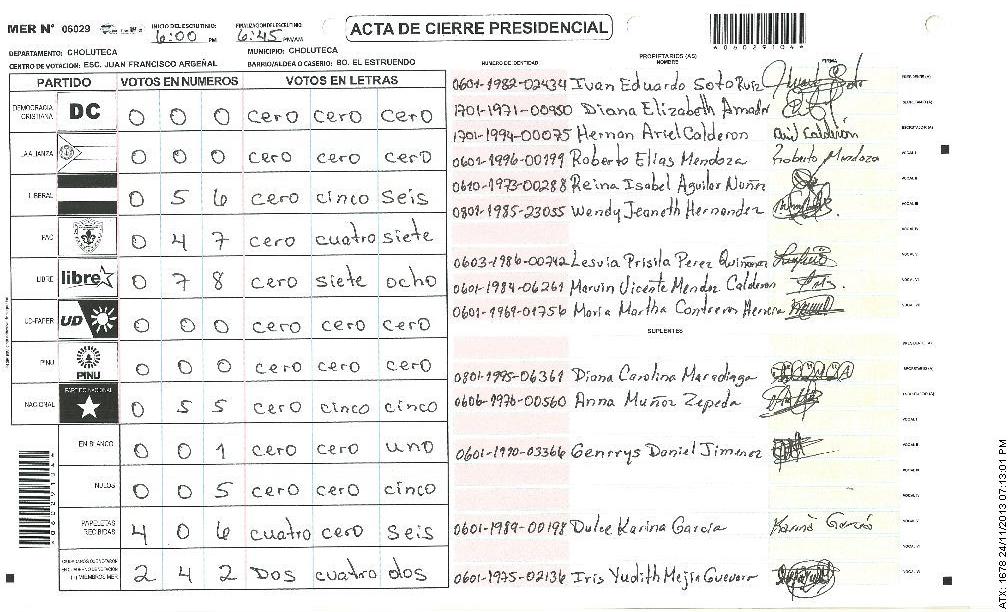 MER Nº 06029 INICIO DEL ESCRUTINIO: 6:00 PM FINALIZACION DEL ESCRUTINIO: 6:45 PM/AM ACTA DE CIERRE PRESIDENCIAL
DEPARTAMENTO: CHOLUTECA MUNICIPIO: CHOLUTECA
CENTRO DE VOTACION: ESC. JUAN FRANCISCO ARGEÑAL BARRIO/ALDEA O CASERIO: BO. EL ESTRUENDO
PARTIDO VOTOS EN NUMEROS VOTOS EN LETRAS
DEMOCRACIA CRISTIANA DC 0 0 0 cero cero cero
LA ALIANZA 0 0 0 cero cero cero
LIBERAL 0 5 6 cero cinco seis
PAC 0 4 7 cero cuatro siete
LIBRE libre 0 7 8 cero siete ocho
UD-FAPER UD 0 0 0 cero cero cero
PINU PINU 0 0 0 cero cero cero
NACIONAL PARTIDO NACIONAL 0 5 5 cero cinco cinco
EN BLANCO 0 0 1 cero cero uno
NULOS 0 0 5 cero cero cinco
PAPELETAS RECIBIDAS 4 0 6 cuatro cero seis
2 4 2 Dos cuatro dos
PROPIETARIOS (AS)
NUMERO DE IDENTIDAD NOMBRE FIRMA
0601-1982-02434 Ivan Eduardo Soto Ruiz
1701-1971-00950 Diana Elizabeth Amador
1701-1994-00075 Hernan Ariel Calderon Ariel Calderón
0601-1996-00199 Roberto Elias Mendoza Roberto Mendoza
0610-1973-00288 Reina Isabel Aguilar Nuñez
0801-1985-23055 Wendy Jeaneth Hernandez
0603-1986-00742 Lesvia Prisila Perez Quiñonez
0601-1984-06261 Marvin Vicente Mendez Calderon
0601-1969-01756 Maria Martha Contreras Herrera
SUPLENTES
0801-1995-06361 Diana Carolina Maradiaga
0606-1976-00560 Anna Muñoz Zepeda
0601-1990-03366 Genrrys Daniel Jimenez
0601-1989-00198 Dulce Karina Garcia Karina Garcia
0601-1975-02136 Iris Yudith Mejia Guevara
ATX: 1678 24/11/2013 07:13:01 PM